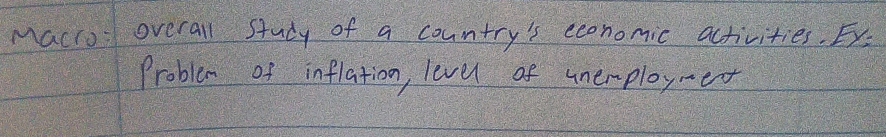 Macro: overall study of a country's economic activities. Ex:
Problem of inflation, level of unemployment